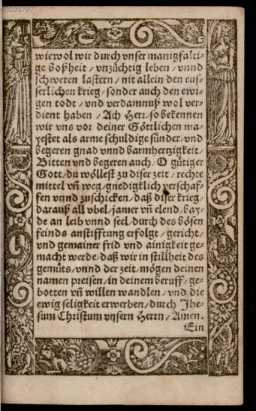 wiewol wir durch vnser manigfalti-
ge boßheit / vnzüchtig leben / vnnd
schweren lastern / nit allein den eus-
serlichen krieg / sonder auch den ewi-
gen todt / vnd verdamnuß wol ver-
dient haben / Ach Herr / so bekennen
wir vns vor deiner Götlichen ma-
yestet als arme schuldige sünder / vnd
begeren gnad vnnd barmhertzigkeit /
Bitten vnd begeren auch / O gütiger
Gott / du wöllest zu diser zeit / rechte
mittel vñ weg / gnedigklich verschaf-
fen vnnd zuschicken / daß diser krieg /
darauß all übel / jamer vñ elend / bay-
de an leib vnnd seel / durch des bösen
feinds anstifftung erfolgt / gericht /
vnd gemainer frid vnd ainigkeit ge-
macht werde / daß wir in stillheit des
gemüts / vnnd der zeit / mögen deinen
namen preisen / in deinem beruff / ge-
botten vñ willen wandlen / vnd die
ewig seligkeit erwerben / durch Jhe-
sum Christum vnsern Herrn / Amen.
Ein